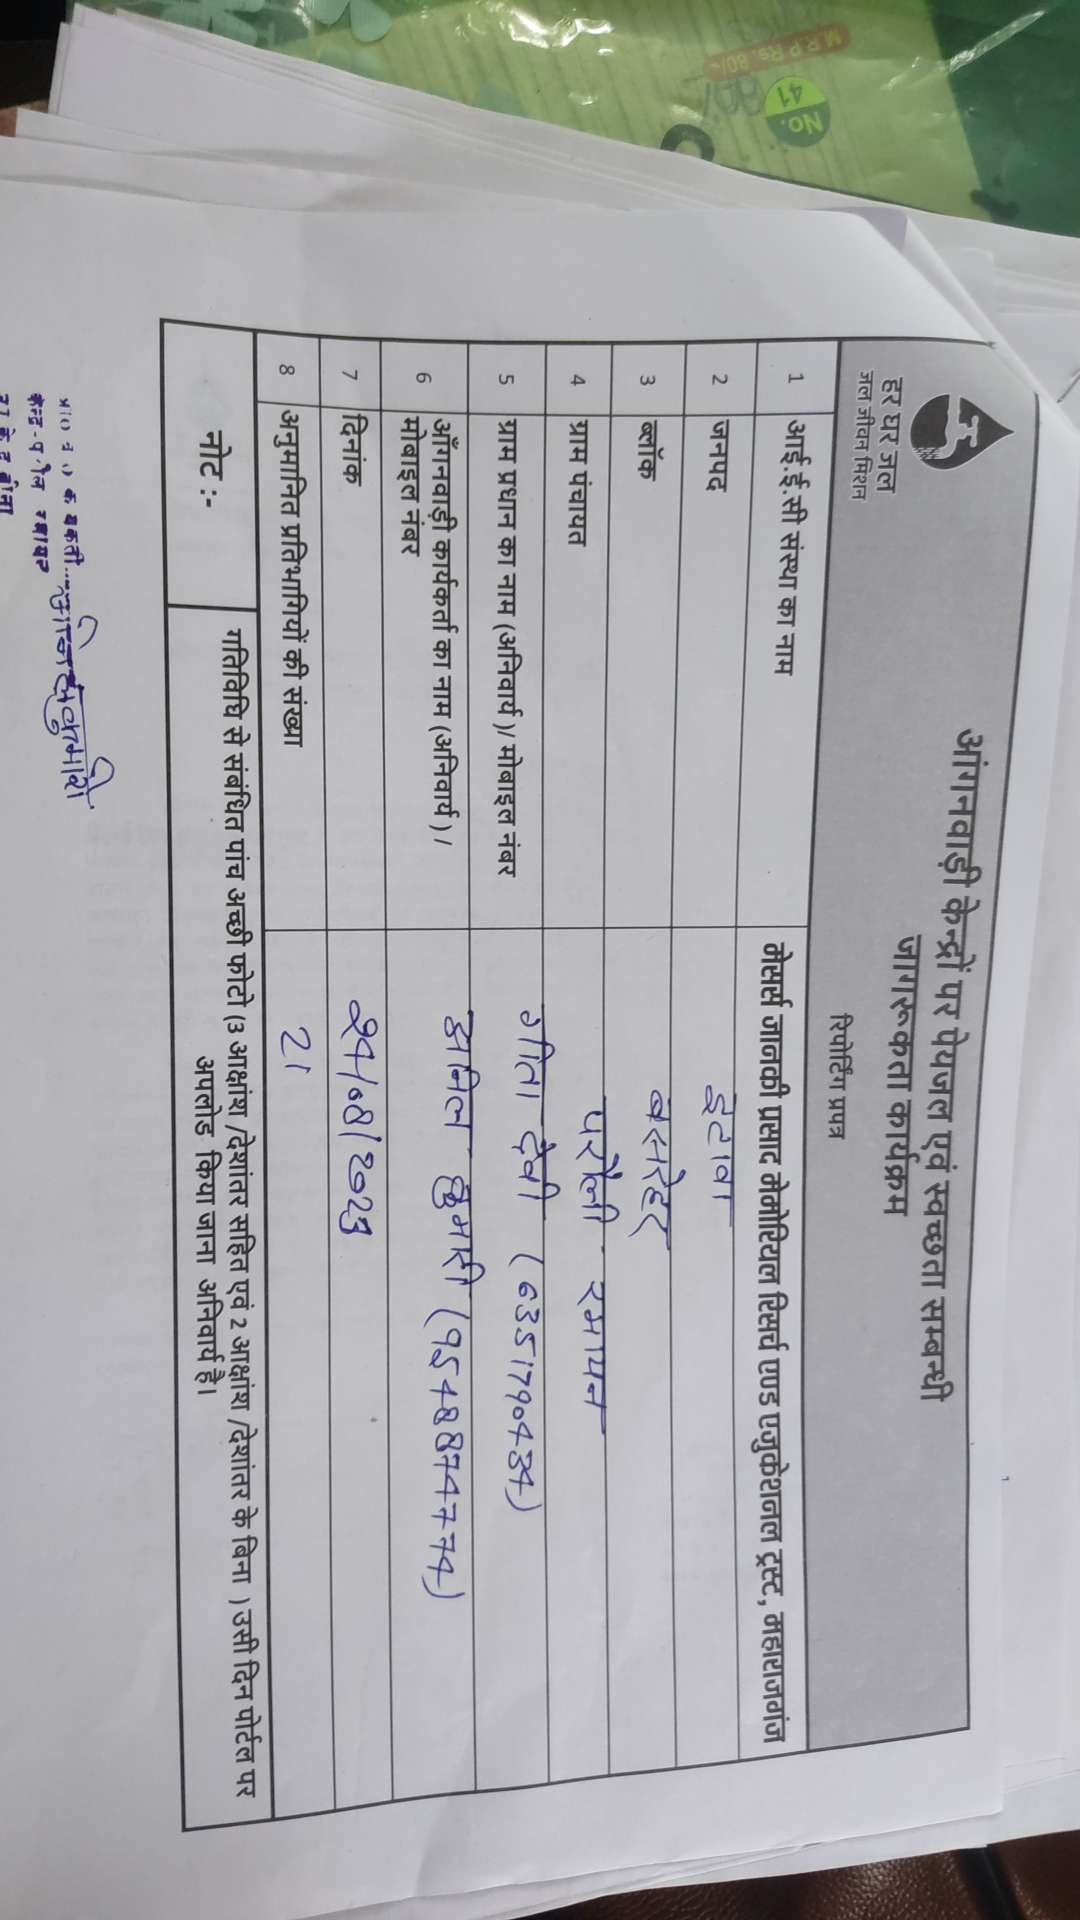 हर घर जल
जल जीवन मिशन
आंगनवाड़ी केन्द्रों पर पेयजल एवं स्वच्छता सम्बन्धी
जागरूकता कार्यक्रम
रिपोर्टिंग प्रपत्र
1 आई.ई.सी संस्था का नाम मेसर्स जानकी प्रसाद मेमोरियल रिसर्च एण्ड एजुकेशनल ट्रस्ट, महाराजगंज
2 जनपद इटावा
3 ब्लॉक बसरेहर
4 ग्राम पंचायत परौली रमायन
5 ग्राम प्रधान का नाम (अनिवार्य)/ मोबाइल नंबर गीता देवी (6351790434)
6 आँगनवाड़ी कार्यकर्ता का नाम (अनिवार्य)/
मोबाइल नंबर अनिल कुमारी (9548874774)
7 दिनांक 29/08/2023
8 अनुमानित प्रतिभागियों की संख्या 21
नोट :- गतिविधि से संबंधित पांच अच्छी फोटो (3 आक्षांश /देशांतर सहित एवं 2 आक्षांश /देशांतर के बिना ) उसी दिन पोर्टल पर
अपलोड किया जाना अनिवार्य है।
M.R.P Rs. 80/-
No.
41